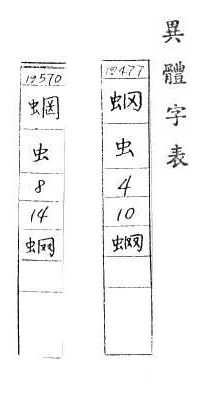 異體字表
12477
虫
4
10
12570
蝄
虫
8
14